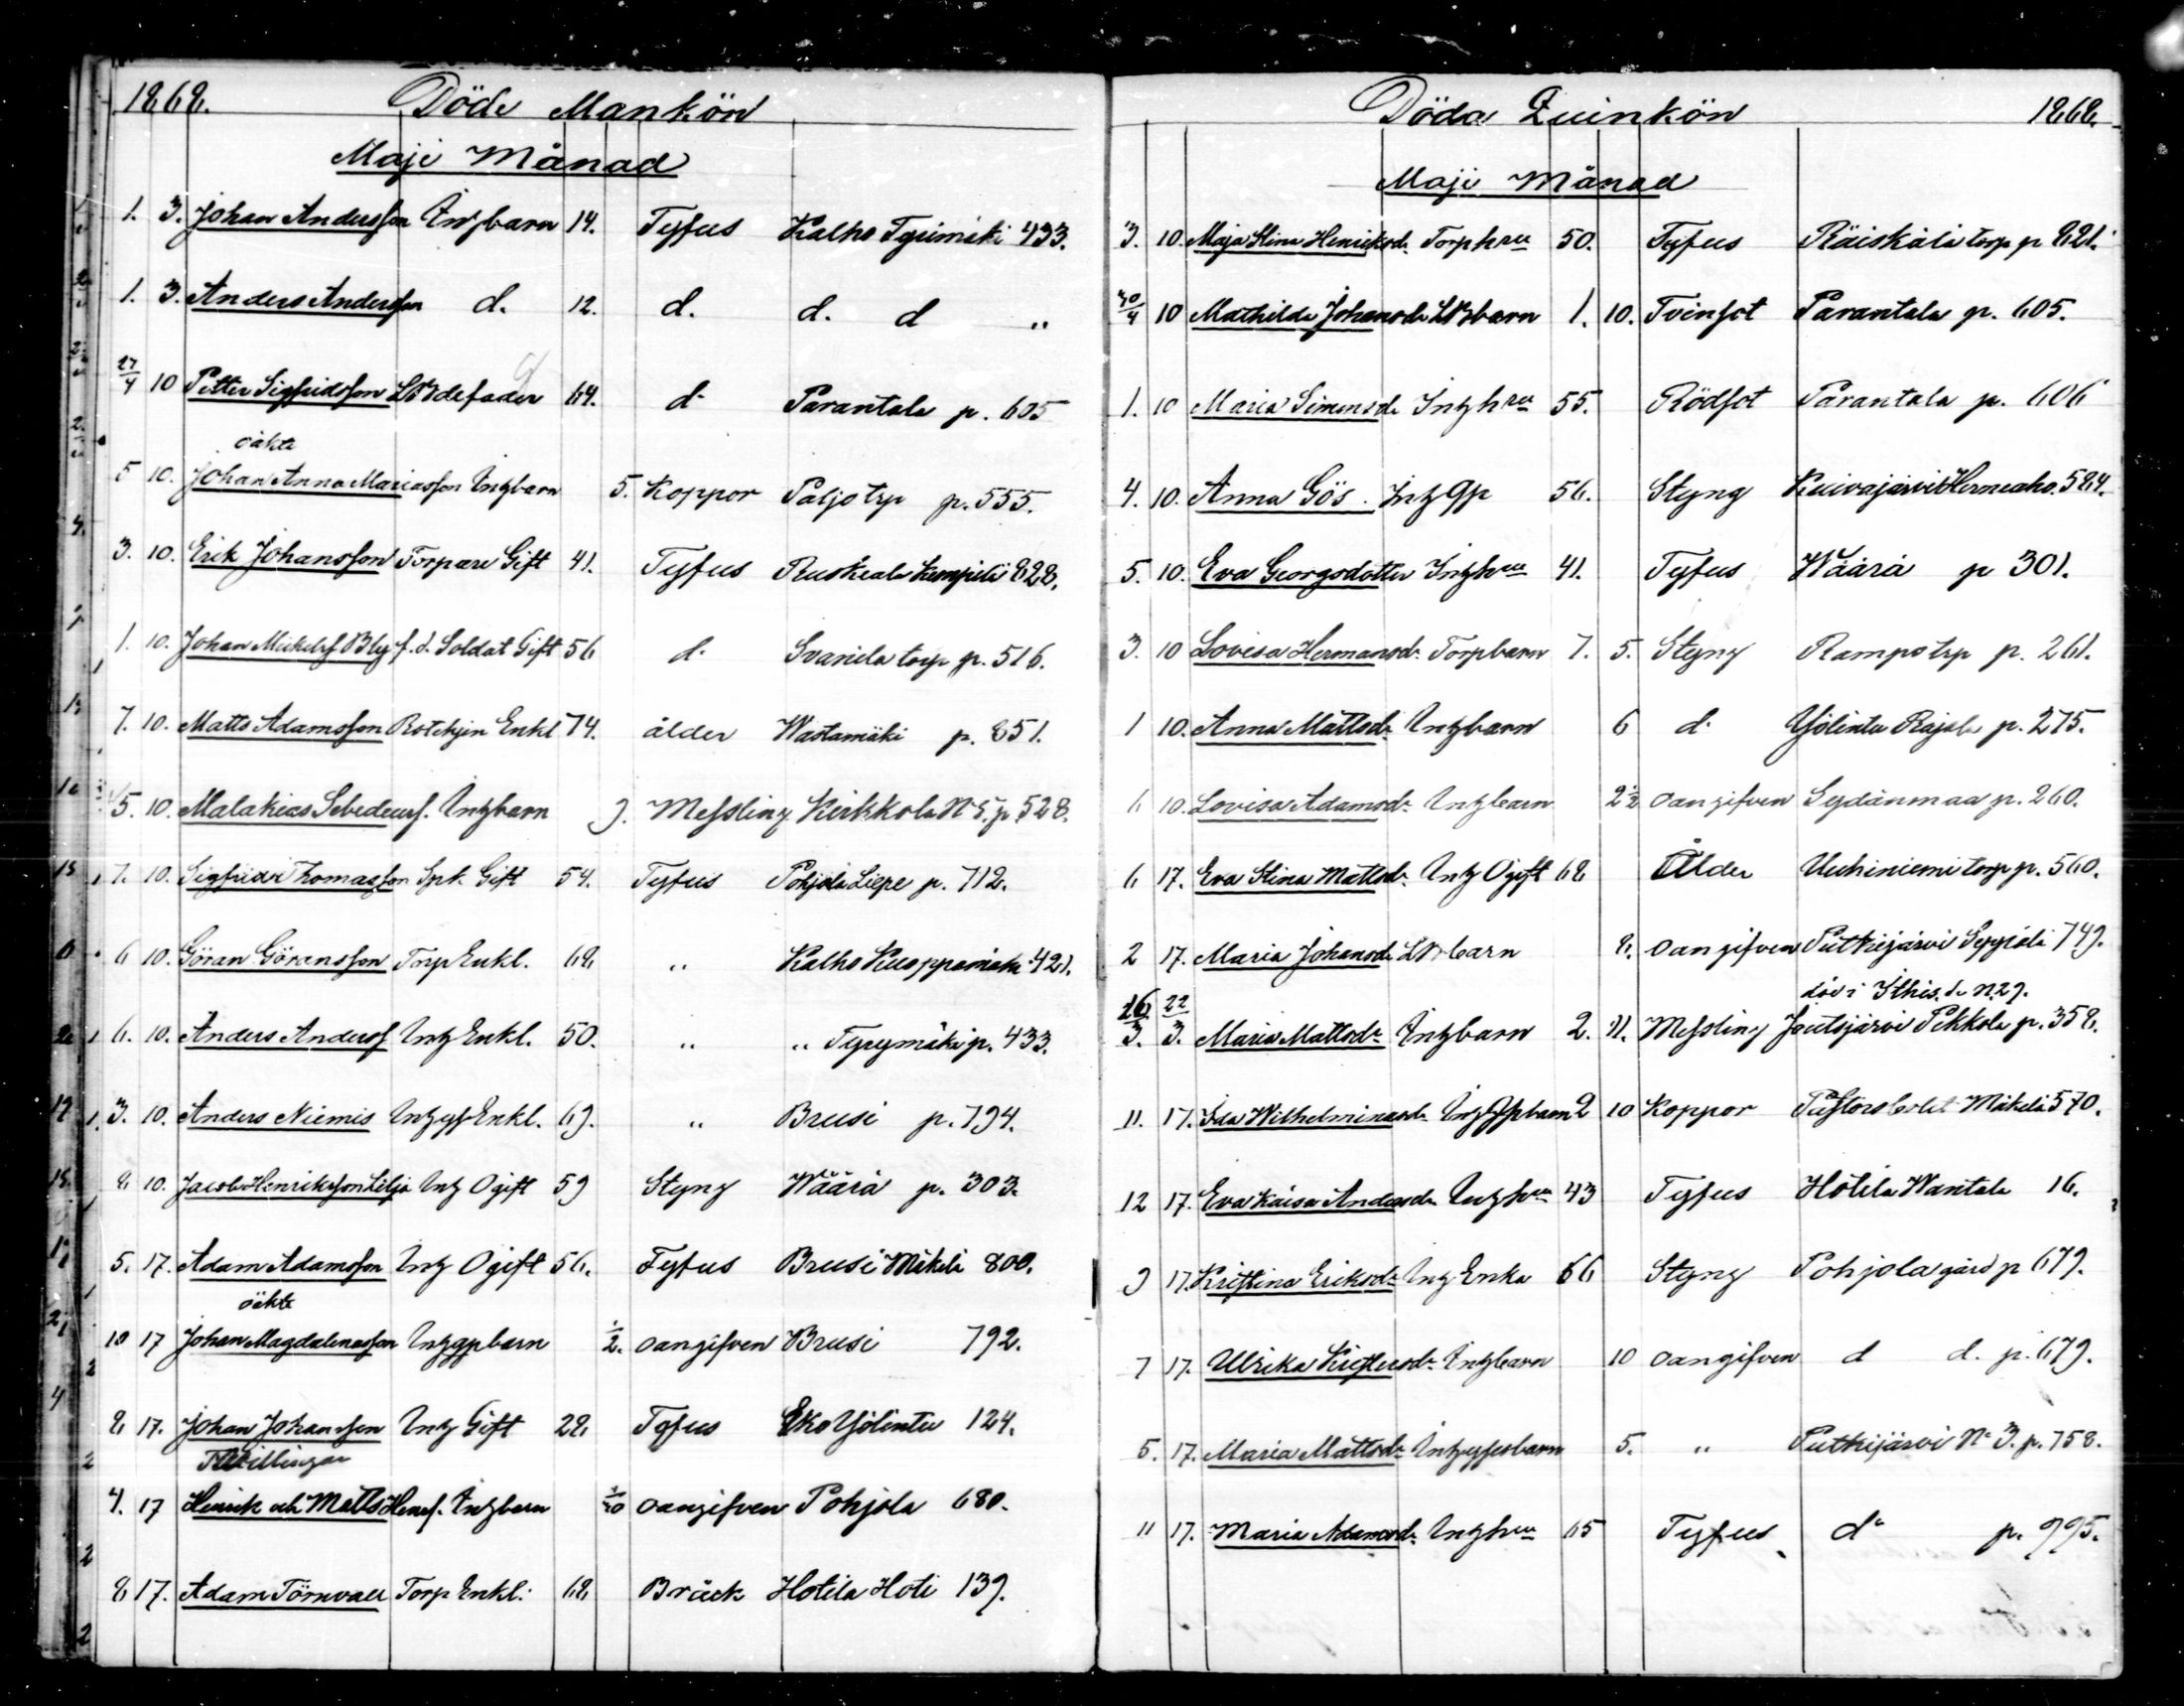 1868. Döde Mankön
Maji Månad
1. 3. Johan Andersson Inhbarn 14. Tyfus Kalho Tyrimäki 433.
1. 3. Anders Andersson d. 12. d. d. d "
27/4 10 Petter Sigfridsson LBdefader 64. d. Parantala p. 605
oäkta
5 10. Johan Anna Mariasson Inhbarn 5. Koppor Paljo trp p. 555.
3. 10. Erik Johansson Torpare Gift 41. Tyfus Ruskeala Kumpula 828.
1. 10. Johan Mickelsf Bly f.d. Soldat Gift 56 d. Svaniela torp p. 516.
7. 10. Matts Adamsson Rotehjon Enkl 74. ålder Wastamäki p. 851.
5. 10. Malakias Sebedeusf. Inhbarn 9. Messling Kirkkola N 5. p. 528.
7. 10. Sigfrid Thomasson Spk. Gift 54. Tyfus Pohjola Liepe p. 712.
6 10. Göran Göransson Torp Enkl. 68 " Kalho Kuoppamäki 421.
6. 10. Anders Andersf Inh Enkl. 50. " " Tyrymäki p. 433.
3. 10. Anders Niemis Inhgp Enkl. 69. " Brusi p. 794.
8 10. Jacob Henriksson Lilja Inh Ogift 59 Styng Wäärä p. 303.
5. 17. Adam Adamsson Inh Ogift 56. Tyfus Brusi Mikeli 800.
oäkta
10 17 Johan Magdalenasson Inhgpbarn 1/2. oangifven Brusi 792.
8 17. Johan Johansson Inh Gift 28 Tyfus Eko Yölintu 124.
Tvillingar
4. 17 Henrik och Matts Henrf. Inhbarn 1/30 oangifven Pohjola 680.
8 17. Adam Törnvall Torp Enkl. 68 Bråck Hotila Hoti 139.
Döda Quinkön 1868.
Maji Månad
3. 10. Maja Stina Henriksdr. Torphru 50. Tyfus Räiskälä torp p 821.
30/4 10 Mathilda Johansdr LBbarn 1. 10. Tvinsot Parantala p. 605.
1. 10 Maria Simonsdr Inhhru 55. Rödsot Parantala p. 606
4. 10. Anna Gös. Inhgp 56. Styng Kuivajärvi Herneaho. 584.
5. 10. Eva Georgsdotter Inhhru 41. Tyfus Wäärä p 301.
3. 10 Lovisa Hermansdr. Torpbarn 7. 5. Styng Rampo trp p. 261.
1 10. Anna Mattsdr Inhbarn 6 d. Yölintu Rajala p. 275.
6 10. Lovisa Adamsdr Inhbarn 2 1/2 oangifven Sydänmaa p. 260.
6 17. Eva Stina Mattsdr. Inh Ogift 68 Ålder Uuhiniemi torp p. 560.
2 17. Maria Johansdr LBbarn 8. oangifven Putkijärvi Seppälä 749.
död i Ithis. N. 29.
16/3. 22/3. Maria Mattsdr Inhbarn 2. 11. Messling Joutsjärvi Pekkola p. 358.
11. 17. Ida Wilhelminasdr Inhgpbarn 2 10 Koppor Mäkelä 570.
12 17. Eva Kaisa Andersdr Inhhru 43 Tyfus Hotila Wantala 16.
9 17. Kristina Eriksdr Inh Enka 66 Styng Pohjola gård p 679.
7 17. Ulrika Kustusdr Inhbarn 10 oangifven d d. p. 679.
5. 17. Maria Mattsdr Inhgpsbarn 5. " Putkijärvi N: 3. p. 758.
11 17. Maria Adamsdr. Inhhru 65 Tyfus d: p. 995.